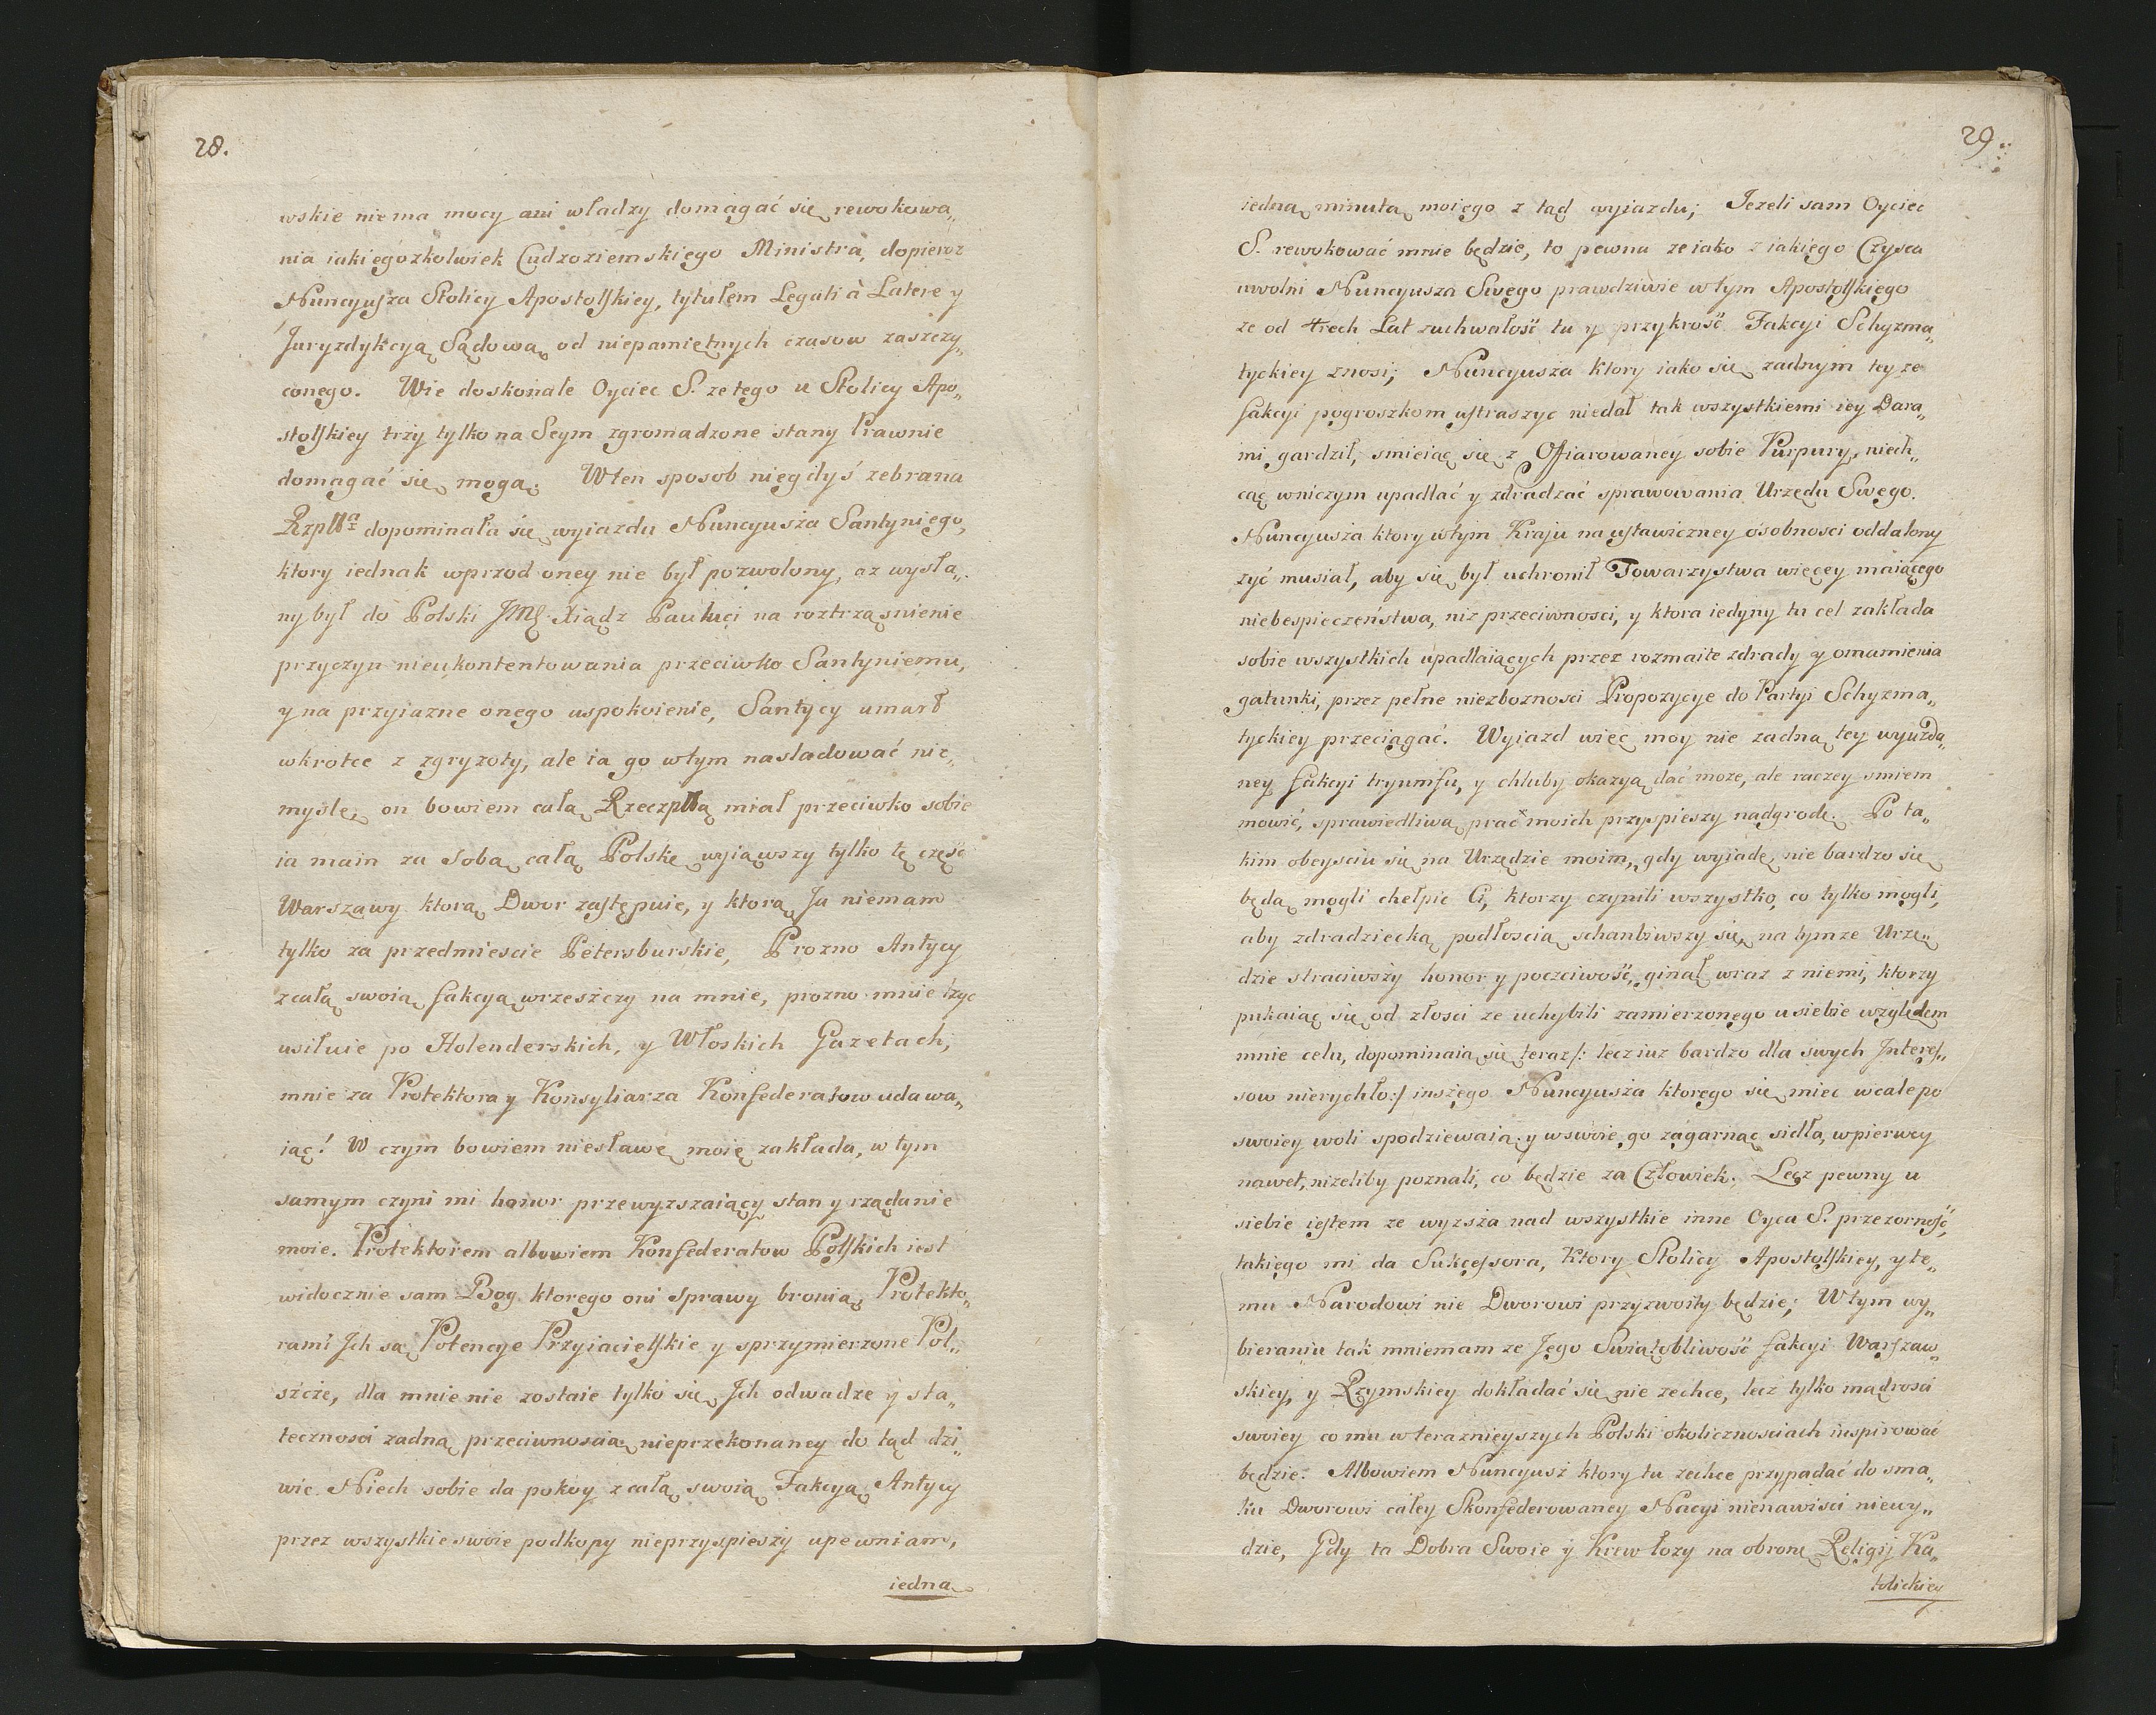 28.
wskie niema mocy ani władzy domagać się rewokowa„
nia iakiegozkolwiek Cudzoziemskiego Ministra, dopieroz
Nuncyusza Stolicy Apostolskiey, tytułem Legati à Latere y
Juryzdykcyą Sądową od niepamiętnych czasow zaszczy„
conego. Wie doskonale Oyciec S. ze tego u Stolicy Apo„
stolskiey trzy tylko na Seym zgromadzone stany Prawnie
domagać się mogą. W ten sposob niegdyś zebrana
Rzplta dopominała się wyiazdu Nuncyusza Santyniego,
ktory iednak wprzod oney nie był pozwolony, az wysła„
ny był do Polski JMC. Xiądz Pauluci na roztrząsnienie
przyczyn nieukontentowania przeciwko Santyniemu,
y na przyiazne onego uspokoienie, Santycy umarł
wkrotce z zgryzoty, ale ia go w tym nasladować nie„
myslę, on bowiem całą Rzeczpltą miał przeciwko sobie
ia mam za sobą całą Polskę wyiąwszy tylko tę część
Warszawy ktorą Dwor zastępuie, y ktorą Ja niemam
tylko za przedmiescie Petersburskie, Prozno Antycy
z całą swoią fakcyą wrzeszczy na mnie, prozno mnie lzyc
usiłuie po Holenderskich, y Włoskich Gazetach,
mnie za Protektora y Konsyliarza Konfederatow udawa„
iąc! W czym bowiem niesławę moię zakłada, w tym
samym czyni mi honor przewyzszaiący stan y rządanie
moie. Protektorem albowiem Konfederatow Polskich iest
widocznie sam Bog ktorego oni sprawy bronią, Protekto„
rami Jch są Potencye Przyiacielskie y sprzymierzone Pol„
szcze, dla mnie nie zostaie tylko się Jch odwadze y sta„
tecznosci zadną przeciwnoscią nieprzekonaney do tąd dzi„
wic. Niech sobie da pokoy z całą swoią Fakcyą Antycy
przez wszystkie swoie podkopy nieprzyspieszy upewniam,
iedną
29.
iedną minutą moiego z tąd wyiazdu; Jezeli sam Oyciec
S. rewokować mnie będzie, to pewna ze iako z iakiego Czysca
uwolni Nuncyusza Swego prawdziwie w tym Apostolskiego
ze od trech Lat zuchwałość tu y przykrość Fakcyi Schyzma„
tyckiey znosi; Nuncyusza ktory iako się zadnym tey ze
fakcyi pogroszkom ustraszyc niedał tak wszystkiemi iey Dara„
mi gardził, smieiąc się z Offiarowaney sobie Purpury, niech„
cąc wniczym upadlać y zdradzać sprawowania Urzędu Swego.
Nuncyusza ktory w tym Kraju na ustawiczney osobnosci oddalony
zyć musiał, aby się był uchronił Towarzystwa więcey maiącego
niebespieczeństwa, niz przeciwnosci, y ktora iedyny tu cel zakłada
sobie wszystkich upadlaiących przez rozmaite zdrady y omamienia
gatunki, przez pełne niezboznosci Propozycye do Partyi Schyzma„
tyckiey przeciągać. Wyiazd więc moy nie zadną tey wyuzda„
ney fakcyi tryumfu, y chluby okazyą dać moze, ale raczey smiem
mowić, sprawiedliwą prac moich przyspieszy nadgrodę. Po ta„
kim obeysciu się na Urzędzie moim, gdy wyiadę nie bardzo się
będą mogli chełpic Ci, ktorzy czynili wszystko, co tylko mogli,
aby zdradziecką podłoscią schanbiwszy się, na tymze Urzę„
dzie straciwszy honor y poczciwość, ginał wraz z niemi, ktorzy
pukaiąc się od złosci ze uchybili zamierzonego u siebie względem
mnie celu, dopominaią się teraz /: lecz iuz bardzo dla swych Jnteres„
sow nierychło :/ inszego Nuncyusza ktorego się miec wcale po
swoiey woli spodziewaią y w swoie go zagarnąc sidła, wpierwey
nawet, nizeliby poznali, co będzie za Człowiek. Lecz pewny u
siebie iestem ze wyzsza nad wszystkie inne Oyca S. przezorność,
takiego mi da Sukcessora, Ktory Stolicy Apostolskiey, y te„
mu Narodowi nie Dworowi przyzwoity będzie; W tym wy„
bieraniu tak mniemam ze Jego Swiątobliwość fakcyi Warszaw„
skiey, y Rzymskiey dokładać się nie zechce, lecz tylko mądrosci
swoiey co mu w teraznieyszych Polski okolicznosciach inspirować
będzie. Albowiem Nuncyusz ktory tu zechce przypadać do sma„
ku Dworowi całey Skonfederowaney Nacyi nienawisci niewy„
dzie, Gdy ta Dobra Swoie y Krew łozy na obronę Religij Ka„
tolickiey